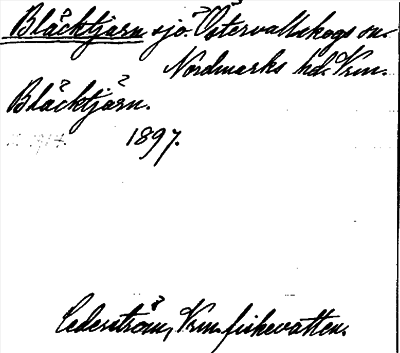 Bläcktjärn sjö. Östervallskogs sn.
Nordmarks hd. Vrm.
Bläcktjärn.
1897.
Cederström, Vrm. fiskevatten.